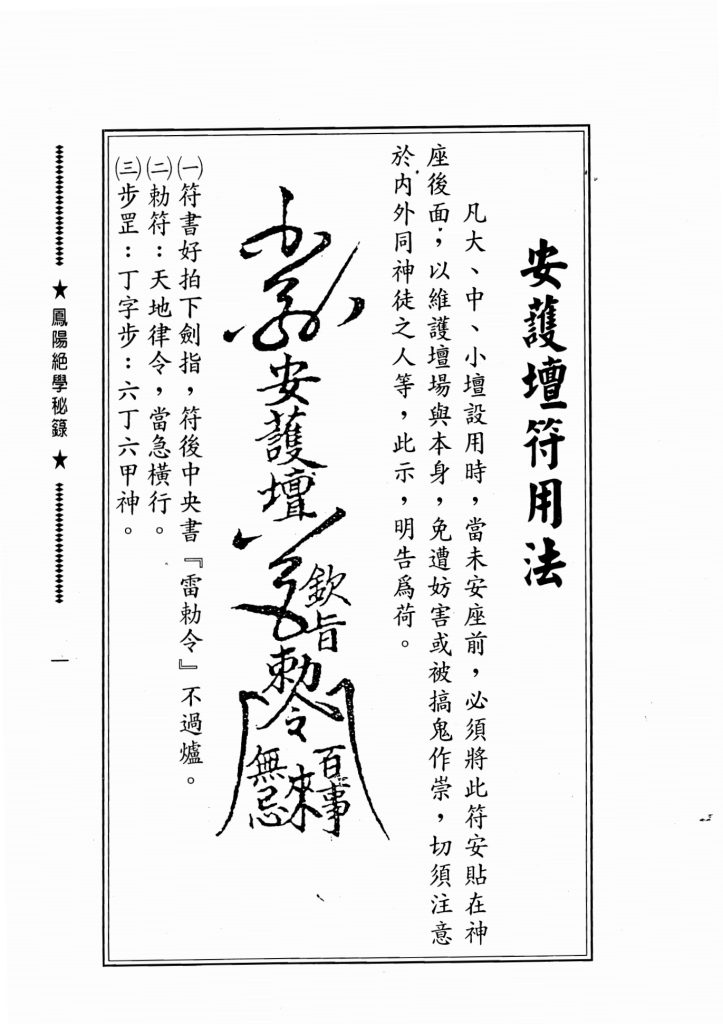 安護壇符用法
凡大、中、小壇設用時，當未安座前，必須將此符安貼在神
座後面；以維護壇場與本身，免遭妨害或被搞鬼作祟，切須注意
於內外同神徒之人等，此示，明告爲荷。
安護壇
欽旨
勅令
百事
來
無忌
㈠符書好拍下劍指，符後中央書『雷勅令』不過爐。
㈡勅符：天地律令，當急橫行。
㈢步罡：丁字步：六丁六甲神。
★ 鳳陽絕學秘錄 ★
一